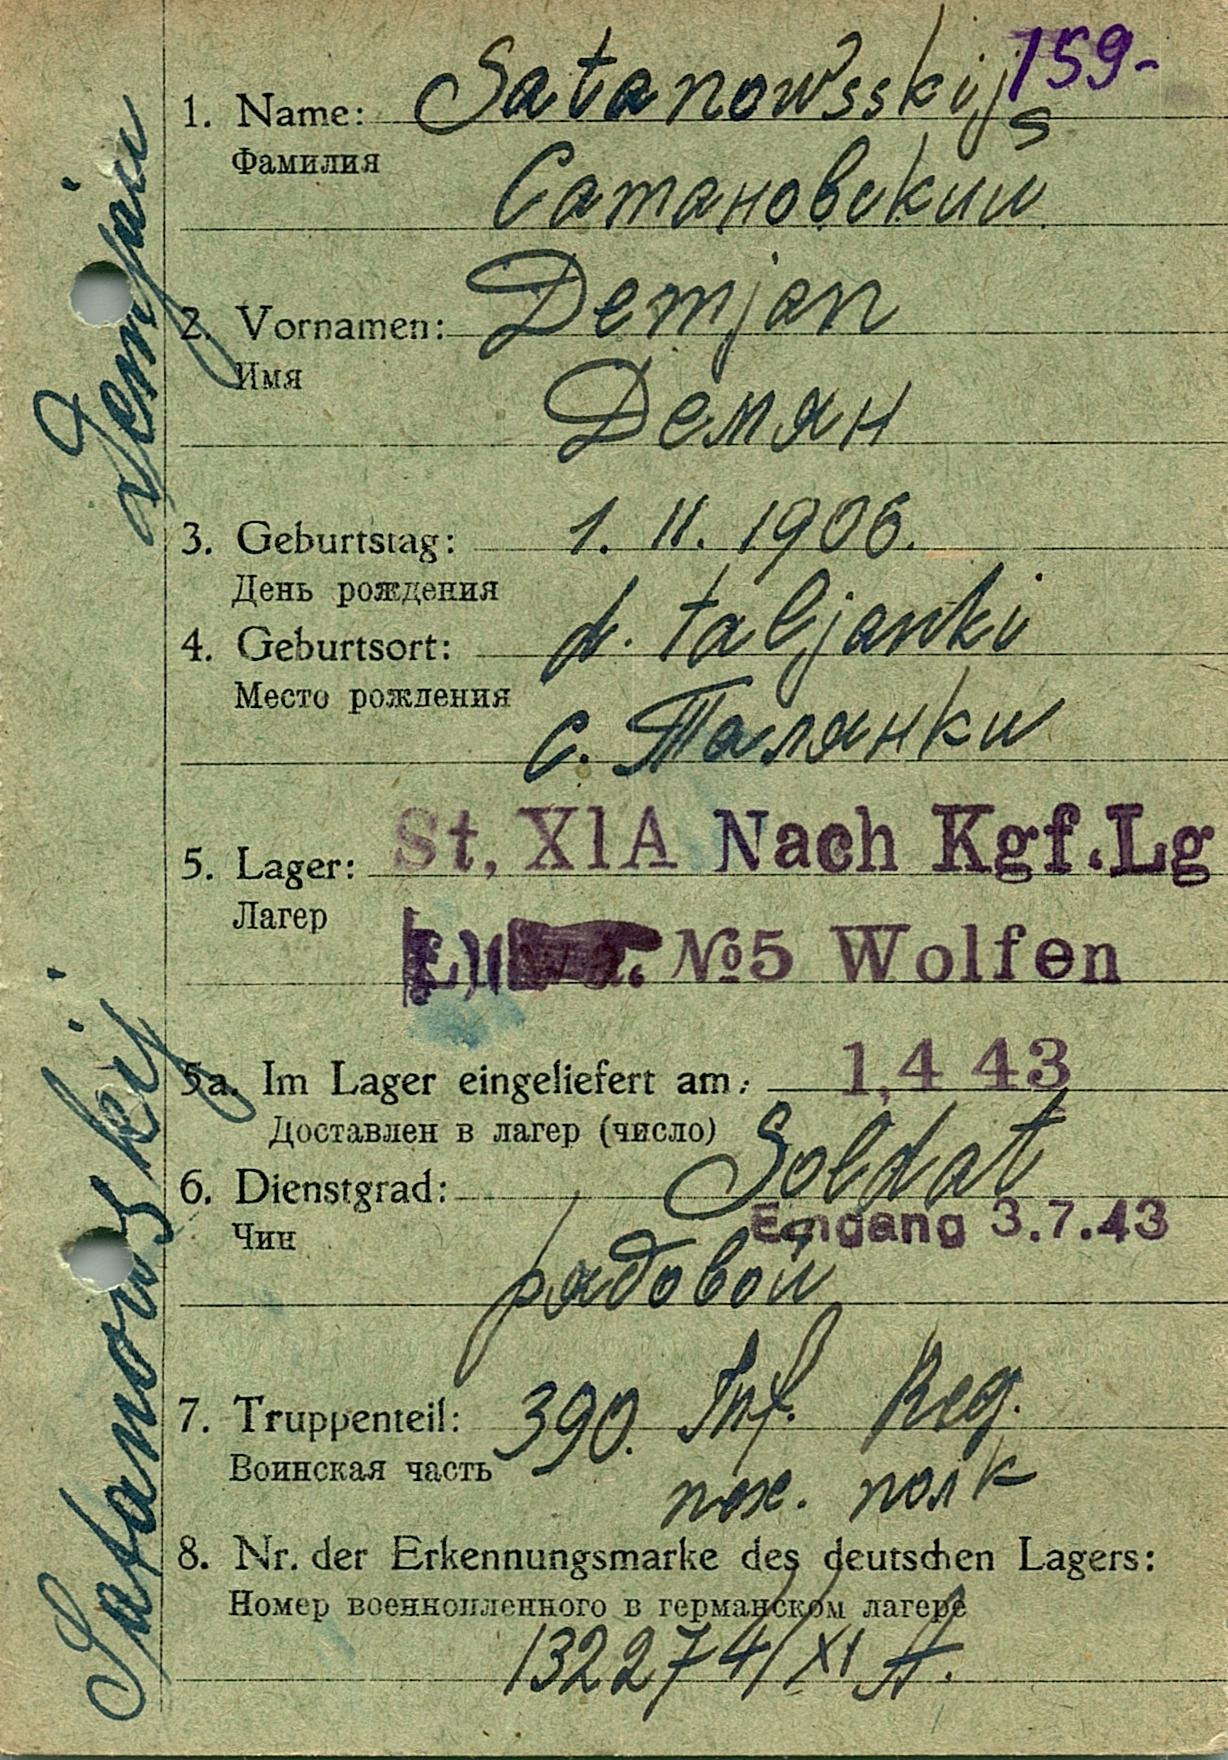 159-
1. Name: Satanowsskij
s
Фамилия
Сатановский
2. Vornamen: Demjan
Имя
Демян
3. Geburtstag: 1. II. 1906.
День рождения
4. Geburtsort: d. Taljanki
Место рождения
с. Талянки
5. Lager: St, XIA Nach Kgf.Lg
Лагер
№5 Wolfen
5a. Im Lager eingeliefert am: 1,4 43
Доставлен в лагер (число)
6. Dienstgrad: Soldat
Eingang 3.7.43
Чин
рядовой
7. Truppenteil: 390. Inf. Reg.
Воинская часть
пех. полк
8. Nr. der Erkennungsmarke des deutschen Lagers:
Номер военнопленного в германском лагере
132274/XI A.
Satanowskij Demjan